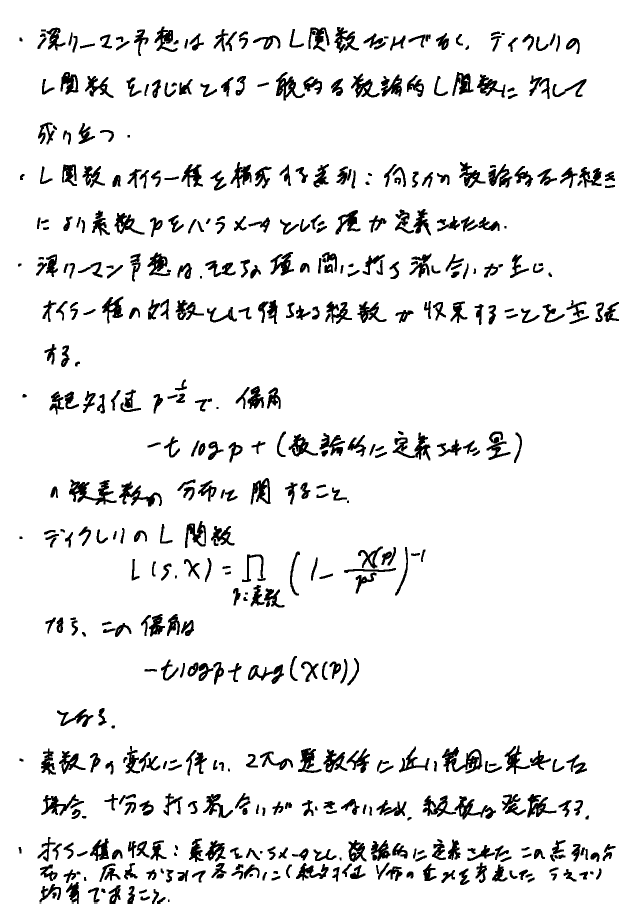 ・深リーマン予想はオイラーのL関数だけでなく、ディリクレの
L関数をはじめとする一般的な数論的L関数に対して
成り立つ.
・L関数のオイラー積を構成する素列: 何らかの数論的な手続き
により素数pをパラメータとした項が定義されたもの.
・深リーマン予想は、それらの項の間に打ち消し合いが生じ、
オイラー積の対数として得られる級数が収束することを主張
する.
・絶対値 p^{-1/2} で、偏角
-t log p + (数論的に定義された量)
の複素数の分布に関すること.
・ディリクレのL関数
L(s,χ) = ∏_{p:素数} (1 - χ(p)/p^s)^{-1}
なら、この偏角は
-t log p + arg(χ(p))
となる.
・素数pの変化に伴い、2πの整数倍に近い範囲に集中した
場合、十分な打ち消し合いがおきないため、級数は発散する.
・オイラー積の収束: 素数をパラメータとし、数論的に定義されたこの点列の分
布が、原点からみて各方向に(絶対値 1/√p の重みを考慮したうえで)
均等であること.